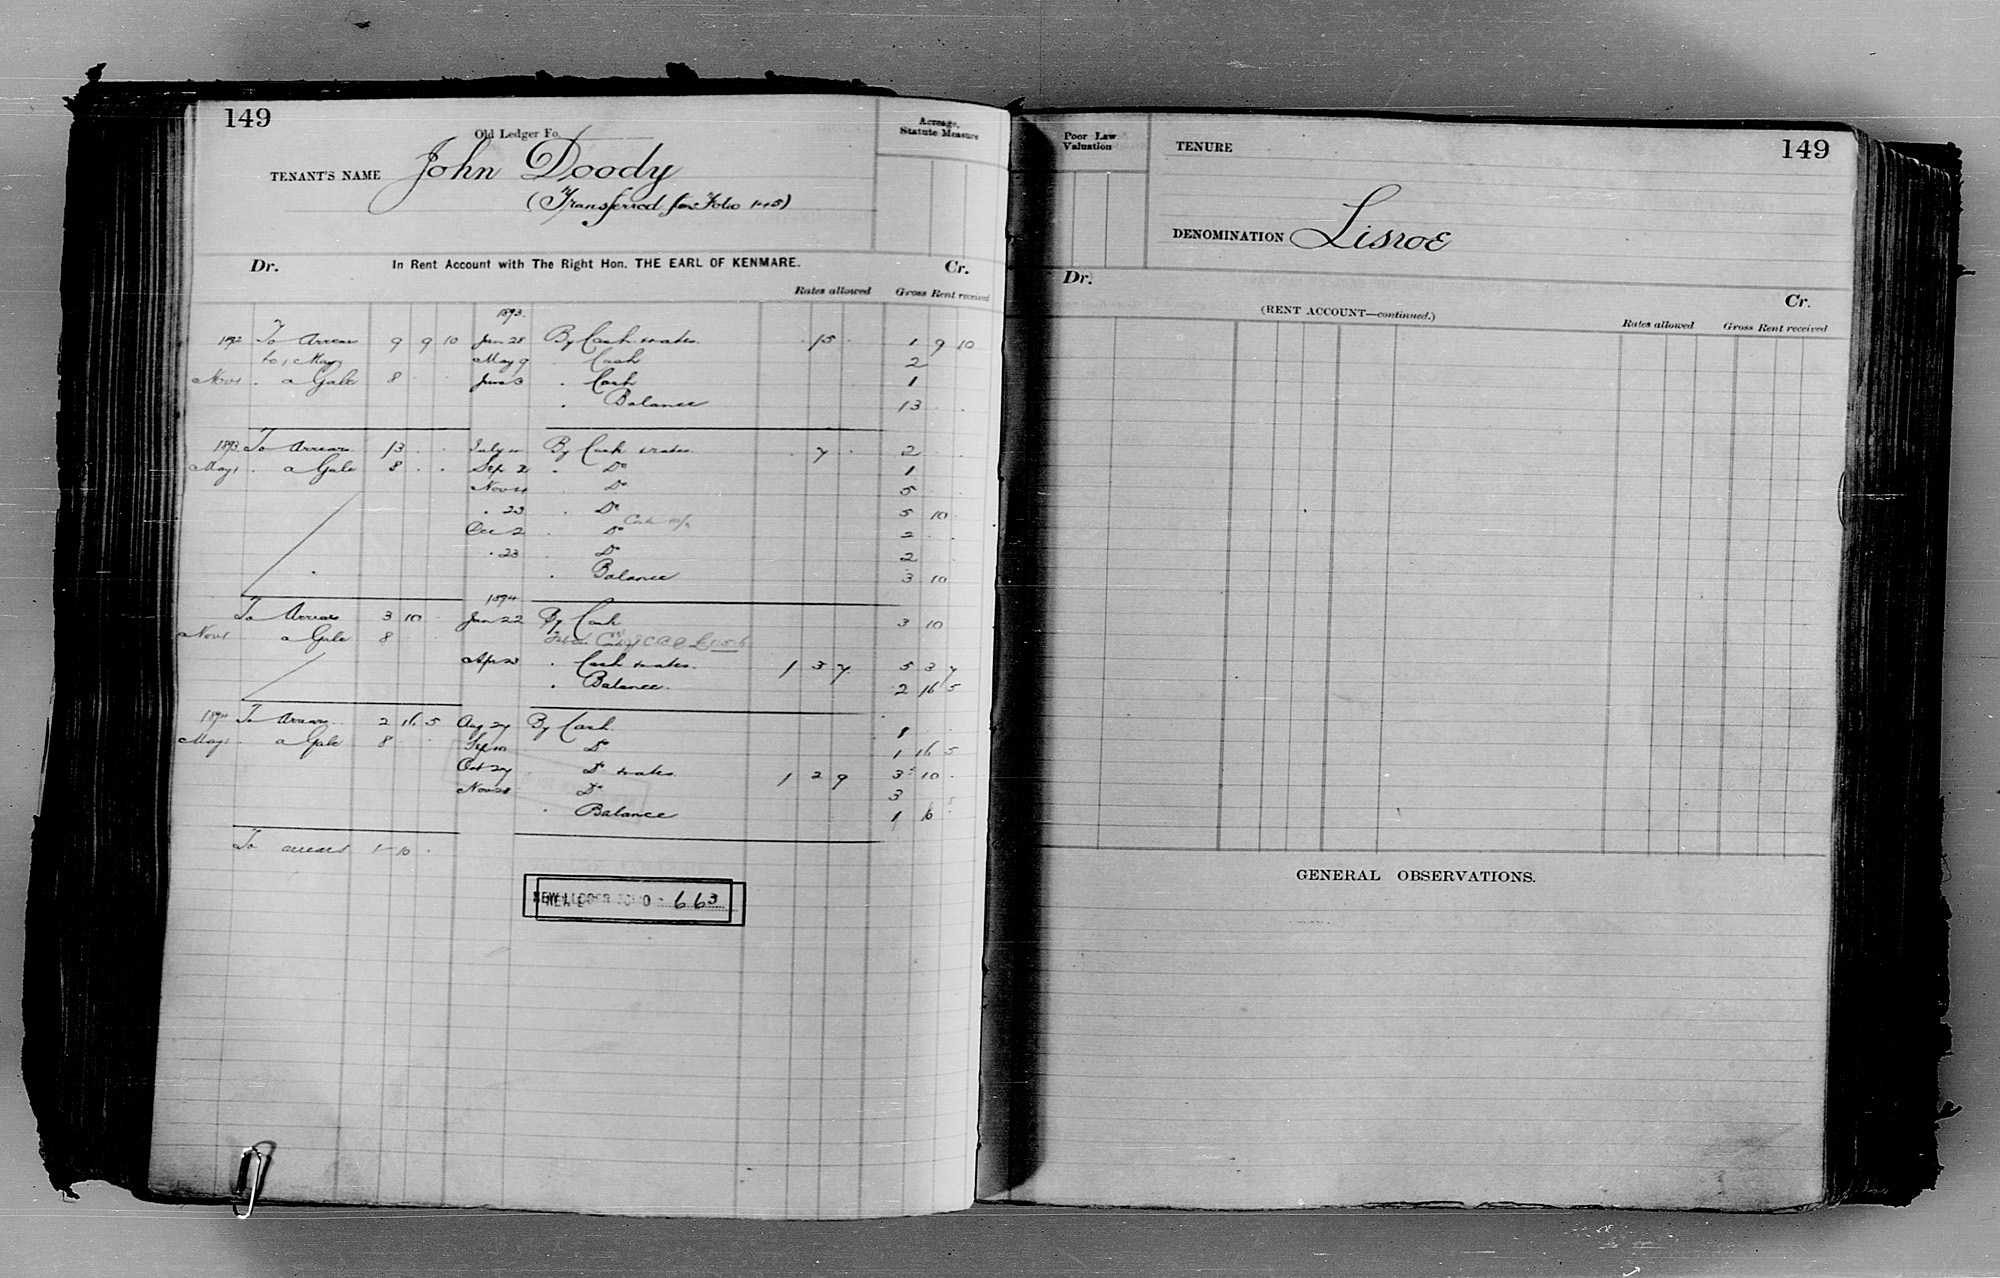 149
Old Ledger Fo.
TENANT'S NAME John Doody
(Transferred from Folio 145)
Acreage, Statute Measure
Dr. In Rent Account with The Right Hon. THE EARL OF KENMARE. Cr.
Rates allowed Gross Rent received
1893.
1892 To Arrears 9 9 10 Jan 28 By Cash & rates. 15 1 9 10
to 1 May May 9 Cash 2
Nov 1 . a Gale 8 June 3 . Cash 1
. Balance 13
1893 To Arrears 13 July 11 By Cash & rates 7 2
May 1 . a Gale 8 Sep 2 . Do 1
Nov 4 . Do 5
. 23 . Do 5 10
Dec 2 . Do 2
. 23 . Do 2
. Balance 3 10
1894
To Arrears 3 10 Jan 22 By Cash 3 10
Nov 1 a Gale 8
Apr 23 . Cash & rates. 1 3 7 5 3 7
. Balance. 2 16 5
1894 To Arrears 2 16 5 Aug 27 By Cash 1
May 1 a Gale 8 Sep 10 Do 1 16 5
Oct 27 . Do & rates 1 2 9 3 10
Nov 28 . Do 3
. Balance 1 16
To arrears 1 10
NEW LEDGER FOLIO 663
Poor Law Valuation
TENURE
149
DENOMINATION Lisroe
Dr. Cr.
(RENT ACCOUNT—continued.)
Rates allowed Gross Rent received
GENERAL OBSERVATIONS.